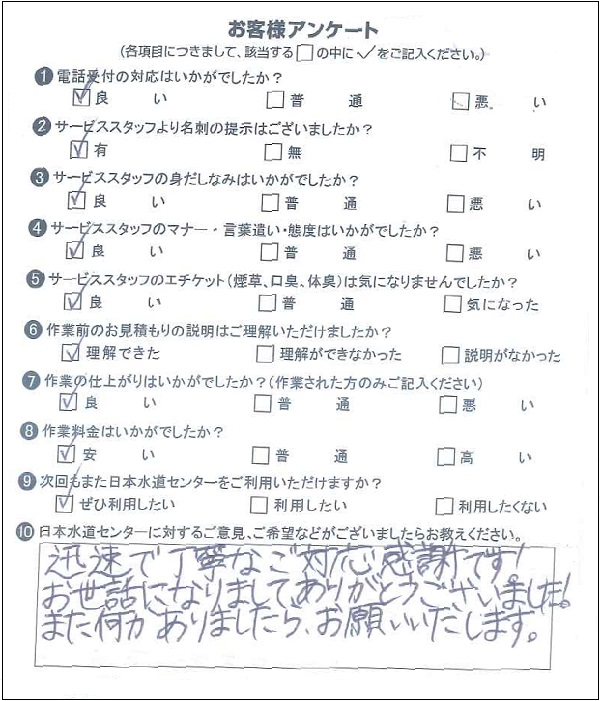 お客様アンケート
(各項目につきまして、該当する□の中に✓をご記入ください。)
❶ 電話受付の対応はいかがでしたか?
☑良い □普通 □悪い
❷ サービススタッフより名刺の提示はございましたか?
☑有 □無 □不明
❸ サービススタッフの身だしなみはいかがでしたか?
☑良い □普通 □悪い
❹ サービススタッフのマナー・言葉遣い・態度はいかがでしたか?
☑良い □普通 □悪い
❺ サービススタッフのエチケット(煙草、口臭、体臭)は気になりませんでしたか?
☑良い □普通 □気になった
❻ 作業前のお見積もりの説明はご理解いただけましたか?
☑理解できた □理解ができなかった □説明がなかった
❼ 作業の仕上がりはいかがでしたか?(作業された方のみご記入ください)
☑良い □普通 □悪い
❽ 作業料金はいかがでしたか?
☑安い □普通 □高い
❾ 次回もまた日本水道センターをご利用いただけますか?
☑ぜひ利用したい □利用したい □利用したくない
❿ 日本水道センターに対するご意見、ご希望などがございましたらお教えください。
迅速で丁寧なご対応感謝です!
お世話になりまして、ありがとうございました!
また何かありましたら、お願いいたします。